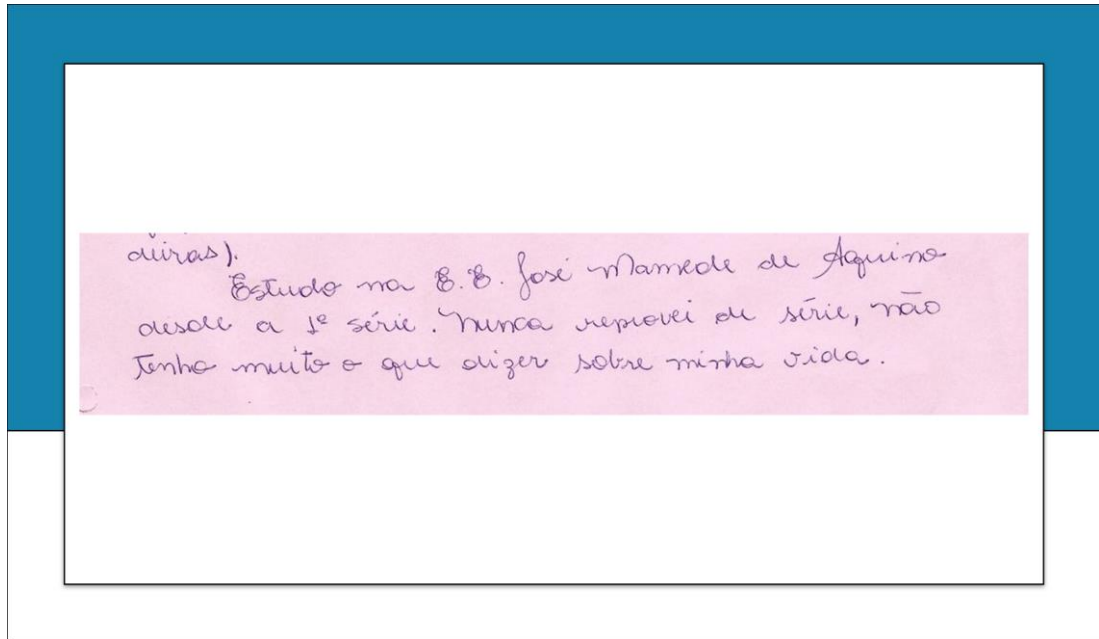 deiras).
Estudo na E.E. José Mamede de Aquino
desde a 1ª série. Nunca reprovei de série, não
tenho muito o que dizer sobre minha vida.